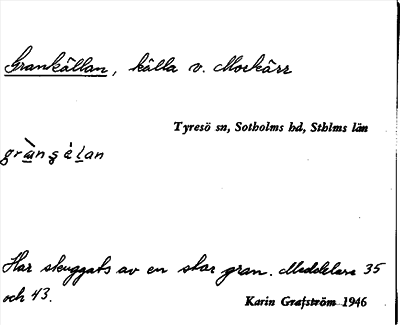 Grankällan, källa v. Mockärr
Tyresö sn, Sotholms hd, Sthlms län
grànşálan
Har skuggats av en stor gran. Meddelare 35
och 43.
Karin Grafström 1946